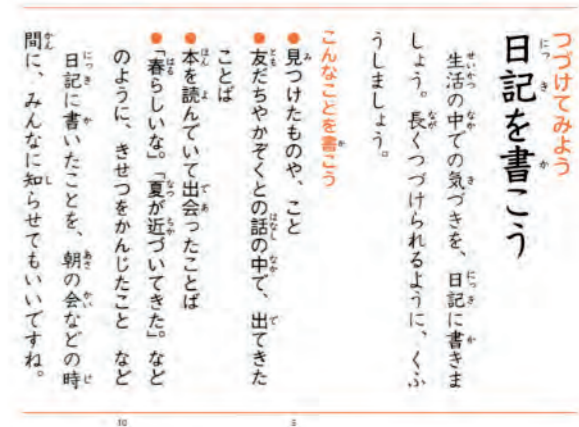 つづけてみよう
日記を書こう
生活の中での気づきを、日記に書きま
しょう。長くつづけられるように、くふ
うしましょう。
こんなことを書こう
●見つけたものや、こと
●友だちやかぞくとの話の中で、出てきた
ことば
●本を読んでいて出会ったことば
●「春らしいな」。「夏が近づいてきた」。など
のように、きせつをかんじたこと など
日記に書いたことを、朝の会などの時
間に、みんなに知らせてもいいですね。
5
10